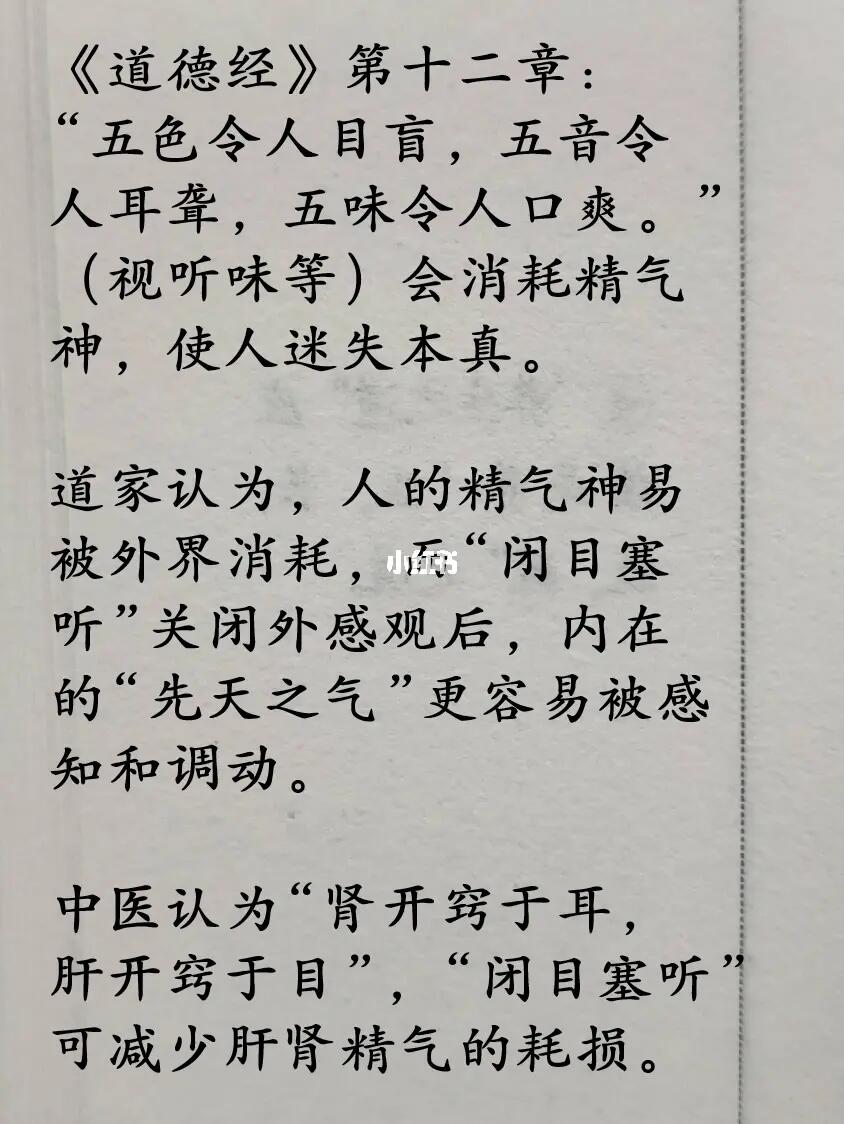 《道德经》第十二章：
“五色令人目盲，五音令
人耳聋，五味令人口爽。”
（视听味等）会消耗精气
神，使人迷失本真。
道家认为，人的精气神易
被外界消耗，而“闭目塞
听”关闭外感观后，内在
的“先天之气”更容易被感
知和调动。
中医认为“肾开窍于耳，
肝开窍于目”，“闭目塞听”
可减少肝肾精气的耗损。
小红书